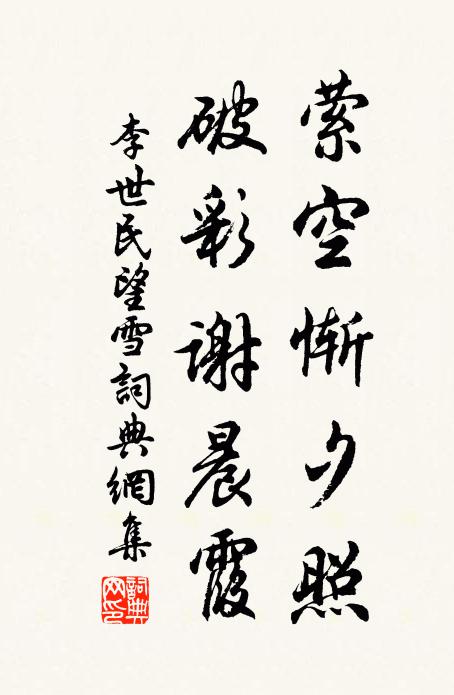 萦空惭夕照
破彩谢晨霞
李世民望雪詞典網集
詞典网印